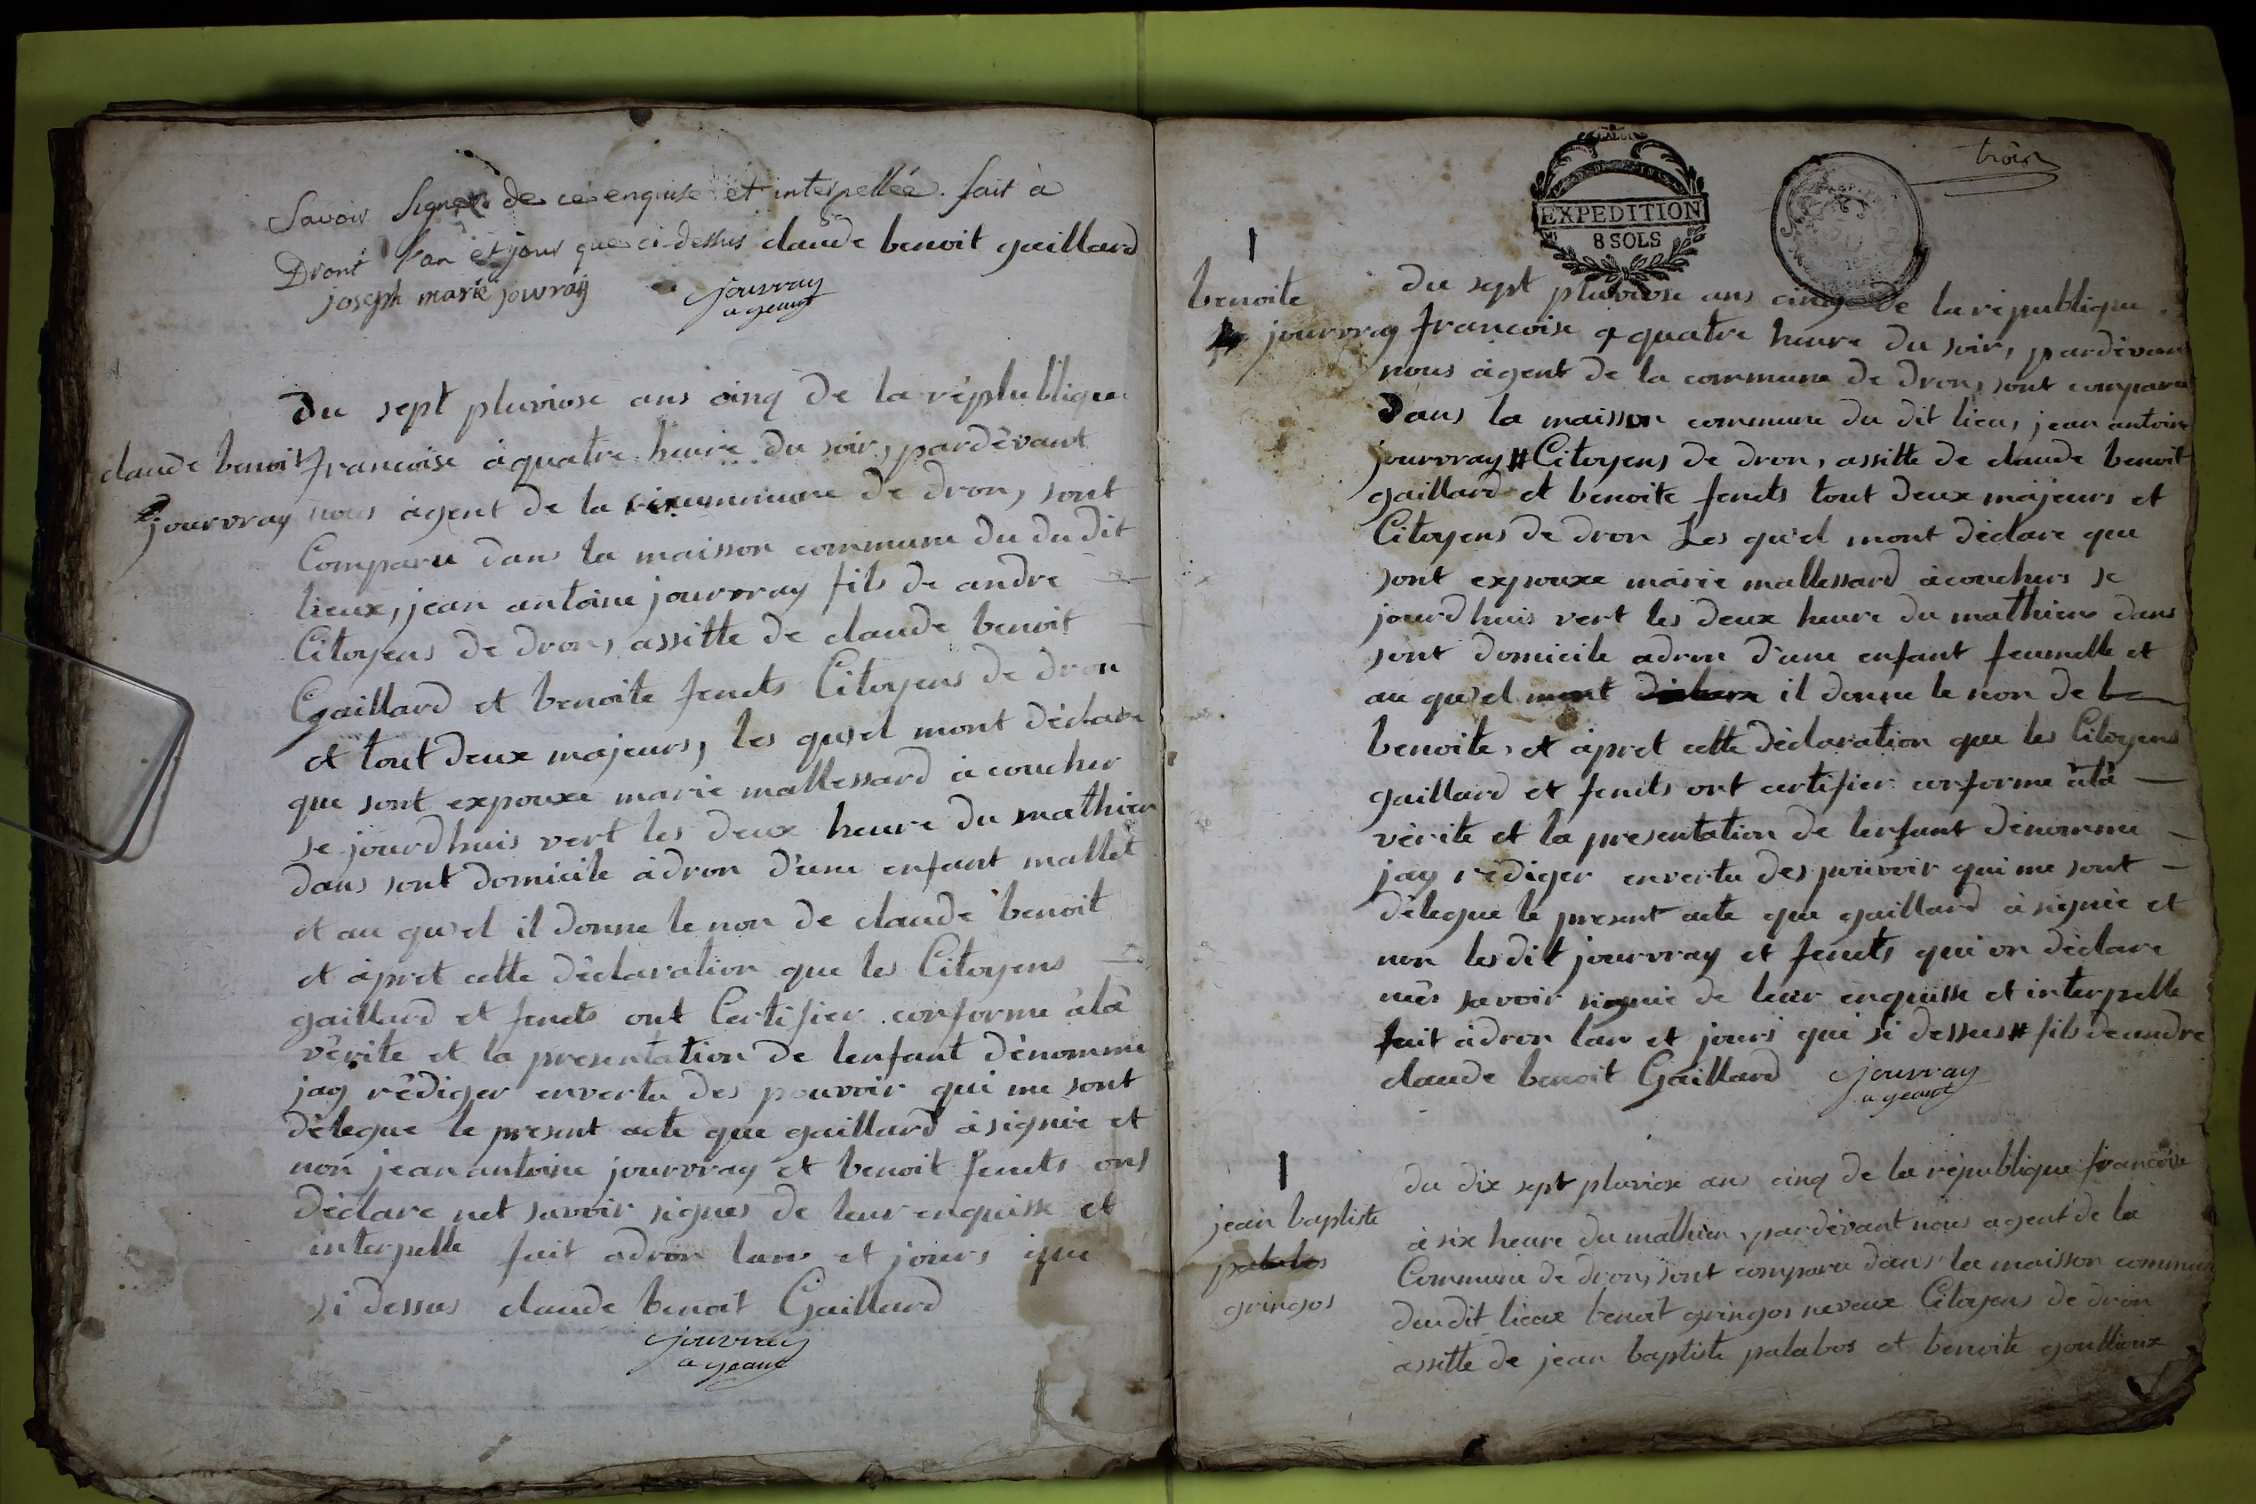 Savoir Signer de ce enquise et interpellée. fait à
Dront l'an et jour que ci-dessus claude benoit gaillard
joseph marie jouvray jouvray
ageant
du sept pluviose ans cinq de la réplublique
claude benoit
jourvray
francoise à quatre heure du soir, pardevant
nous àgent de la commune de dron, sont
Comparu dans la maisson commune du du dit
lieux, jean antoine jourvray fils de andre
Citoyens de dron, assitte de claude benoit
Gaillard et benoite fenets Citoyens de dron
et tout deux majeurs, les qu'el mont déclare
que sont expouxe marie mallessard àcoucher
se jourdhuis vert les deux heure du mathien
dans sont domicile àdron d'une enfant mallet
et au qu'el il donne le non de claude benoit
et àpret cette déclaration que les Citoyens
gaillard et fenets ont Certifier conforme àlà
vérite et la presentation de lenfant dénomme
jay rédiger envertu des pouvoir qui me sont
délegue le present acte que gaillard àsignie et
non jean antoine jourvray et benoit fenets ons
déclare net savoir signes de leur enquisse et
interpelle fait adron lans et jours que
si dessus claude benoit Gaillard
jouvray
ageant
trois
EXPEDITION
8 SOLS
benoite
jourvray
du sept pluviose ans cinq de la république
francoise a quatre heure du soir, pardévant
nous àgent de la commune de dron, sont comparu
dans la maisson commune du dit lieu, jean antoine
jourvray # Citoyens de dron, assitte de claude benoit
gaillard et benoite fenets tout deux majeurs et
Citoyens de dron Les qu'el mont déclare que
sont expouxe marie mallessard àcouchers se
jourdhuis vert les deux heure du mathien dans
sont domicile adron d'une enfant feumelle et
au qu'el mont il donne le non de be
benoite, et àpret cette déclaration que les Citoyens
gaillard et fenets ont certifier conforme àlà
vérite et la presentation de lenfant dénomme
jay rédiger envertu des pouvoir qui me sont
délegue le present acte que gaillard àsignie et
non lesdit jourvray et fenets qui on déclare
nés savoir signie de leur enquisse et interpelle
fait àdron lan et jours que si dessus # fils de andre
claude benoit Gaillard jouvray
ageant
jean baptiste
palabos
gringos
du dix sept pluviose ans cinq de la république francoise
à six heure du mathien, pardévant nous agent de la
Commune de dron, sont comparu dans la maisson commun
du dit lieux benoit gringos neveux Citoyens de dron
assitte de jean baptiste palabos et benoite goullioux